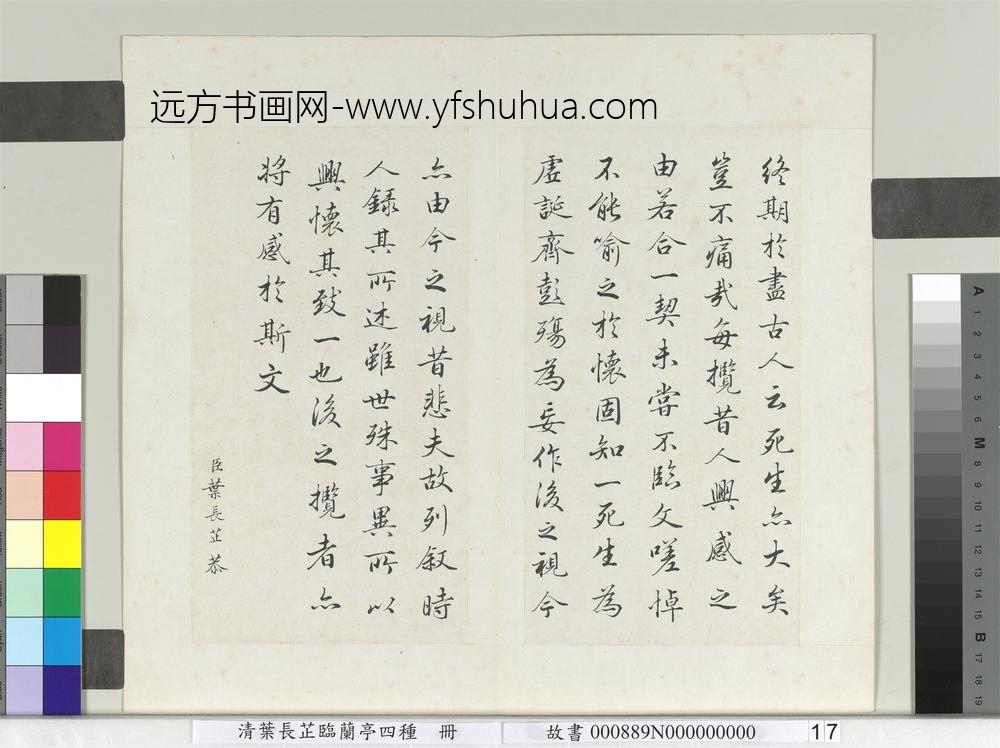 远方书画网-www.yfshuhua.com
終期於盡古人云死生亦大矣
豈不痛哉每攬昔人興感之
由若合一契未嘗不臨文嗟悼
不能喻之於懷固知一死生為
虛誕齊彭殤為妄作後之視今
亦由今之視昔悲夫故列叙時
人錄其所述雖世殊事異所以
興懷其致一也後之攬者亦
將有感於斯文
臣葉長芷恭
清葉長芷臨蘭亭四種 冊
故書 000889N000000000
17
A 1 2 3 4 5 6 M 8 9 10 11 12 13 14 15 B 17 18 19